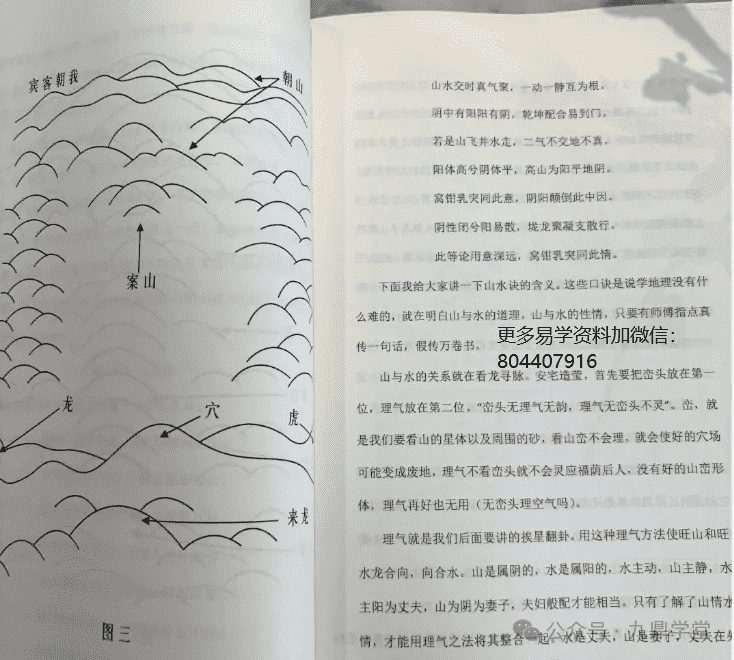 宾客朝我
朝山
案山
龙
穴
虎
来龙
图三
山水交时真气聚，一动一静互为根。
阴中有阳阳有阴，乾坤配合易到门。
若是山飞并水走，二气不交地不真。
阳体高兮阴体平，高山为阳平地阴。
窝钳乳突同此意，阴阳颠倒此中因。
阴性闭兮阳易散，垅龙聚凝支散行。
此等论用意深远，窝钳乳突同此情。
下面我给大家讲一下山水诀的含义。这些口诀是说学地理没有什
么难的，就在明白山与水的道理，山与水的性情，只要有师傅指点真
传一句话，假传万卷书。
更多易学资料加微信：
804407916
山与水的关系就在看龙寻脉。安宅造茔，首先要把峦头放在第一
位，理气放在第二位。“峦头无理气无韵，理气无峦头不灵”。峦，就
是我们要看山的星体以及周围的砂，看山峦不会理，就会使好的穴场
可能变成废地，理气不看峦头就不会灵应福荫后人，没有好的山峦形
体，理气再好也无用（无峦头理空气吗）。
理气就是我们后面要讲的挨星翻卦。用这种理气方法使旺山和旺
水龙合向，向合水。山是属阴的，水是属阳的，水主动，山主静，水
主阳为丈夫，山为阴为妻子，夫妇般配才能相当。只有了解了山情水
情，才能用理气之法将其整合一起。水是丈夫，山是妻子，丈夫在外
公众号·九鼎学堂